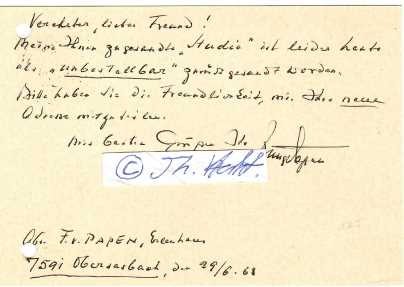 Verehrter, lieber Freund!
Meine Ihnen zugesandte „Studie" ist leider heute
als „unbestellbar" zurückgesandt worden.
Bitte haben Sie die Freundlichkeit, mir Ihre neue
Adresse mitzuteilen.
Mit besten Grüßen Ihr
© Th. 
Abs. F. v. PAPEN, Erlenhaus
7591 Obersasbach, den 29/6. 68